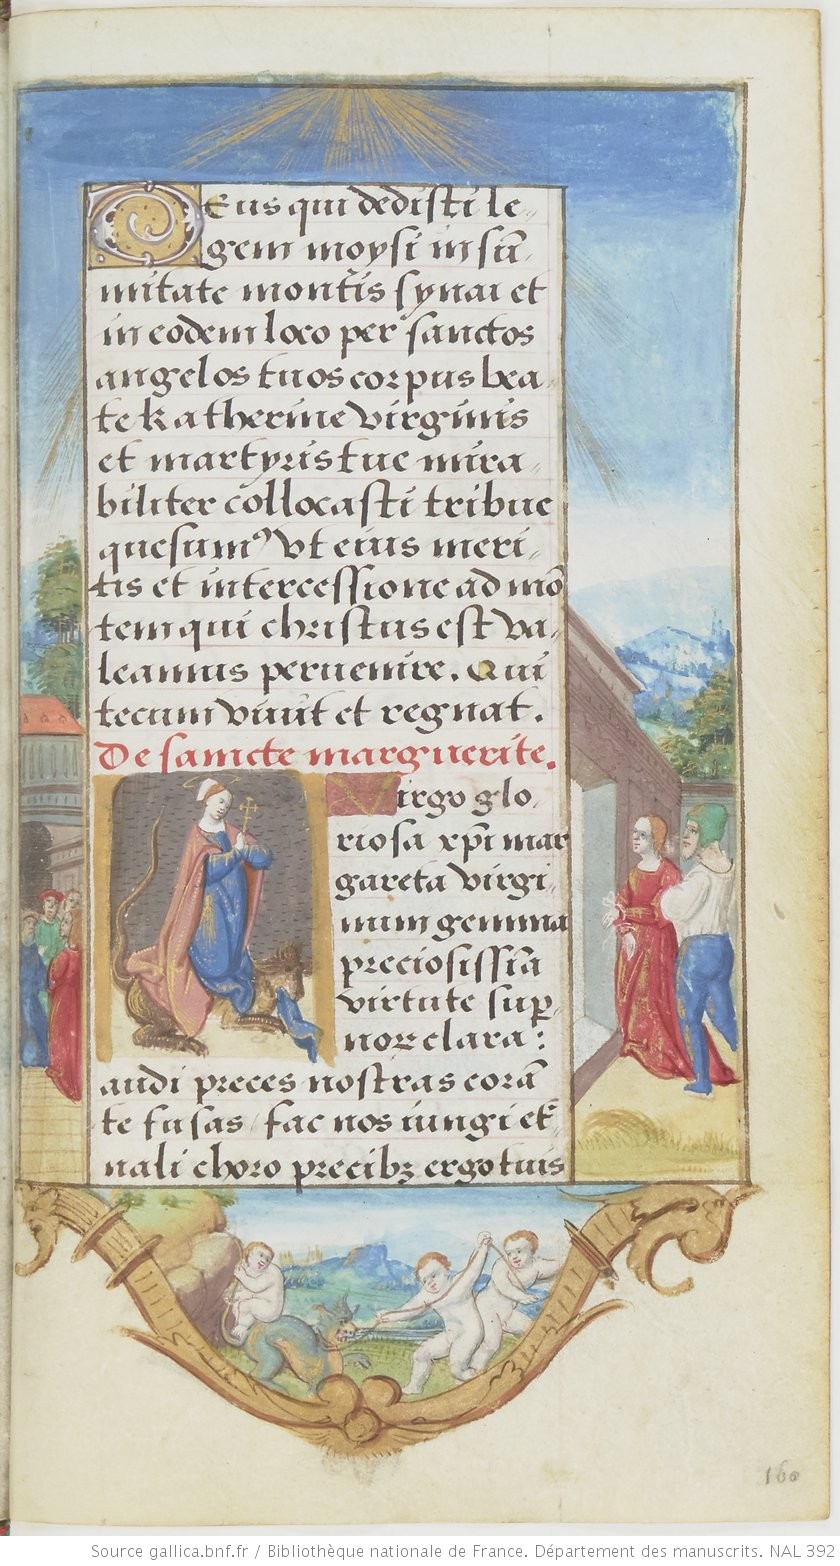 Deus qui dedisti le-
gem moysi in sũ-
mitate montis synai et
in eodem loco per sanctos
angelos tuos corpus bea-
te katherine virginis
et martyris tue mira-
biliter collocasti tribue
quesumꝰ vt eius meri-
tis et intercessione ad mõ
tem qui christus est va-
leamus peruenire. Qui
tecum viuit et regnat.
De sancte marguerite.
Virgo glo-
riosa xp̃i mar
gareta virgi-
num gemma
preciosissĩa
virtute sup̱-
nor clara:
audi preces nostras corã
te fusas / fac nos iungi et
nali choro precibꝫ ergo tuis
160
Source gallica.bnf.fr / Bibliothèque nationale de France. Département des manuscrits. NAL 392